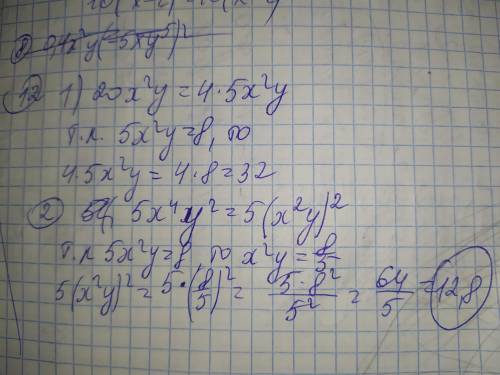 ⑧ 0,4x²y(-5xy⁵)²
⑫ 1) 20x²y = 4·5x²y
т.к. 5x²y=8, то
4·5x²y = 4·8=32
② 5x⁴y² = 5(x²y)²
т.к 5x²y=8 то x²y = 8/5
5(x²y)² = 5·(8/5)² = 5·8²/5² = 64/5 = 12,8